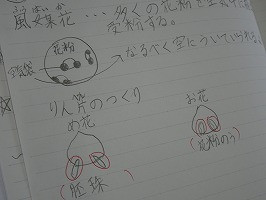 ばいか
風媒花...多くの花粉を
受粉する。
花粉
空気袋
なるべく空にういていられる。
りん片のつくり
め花
お花
(胚珠)
(花粉のう)